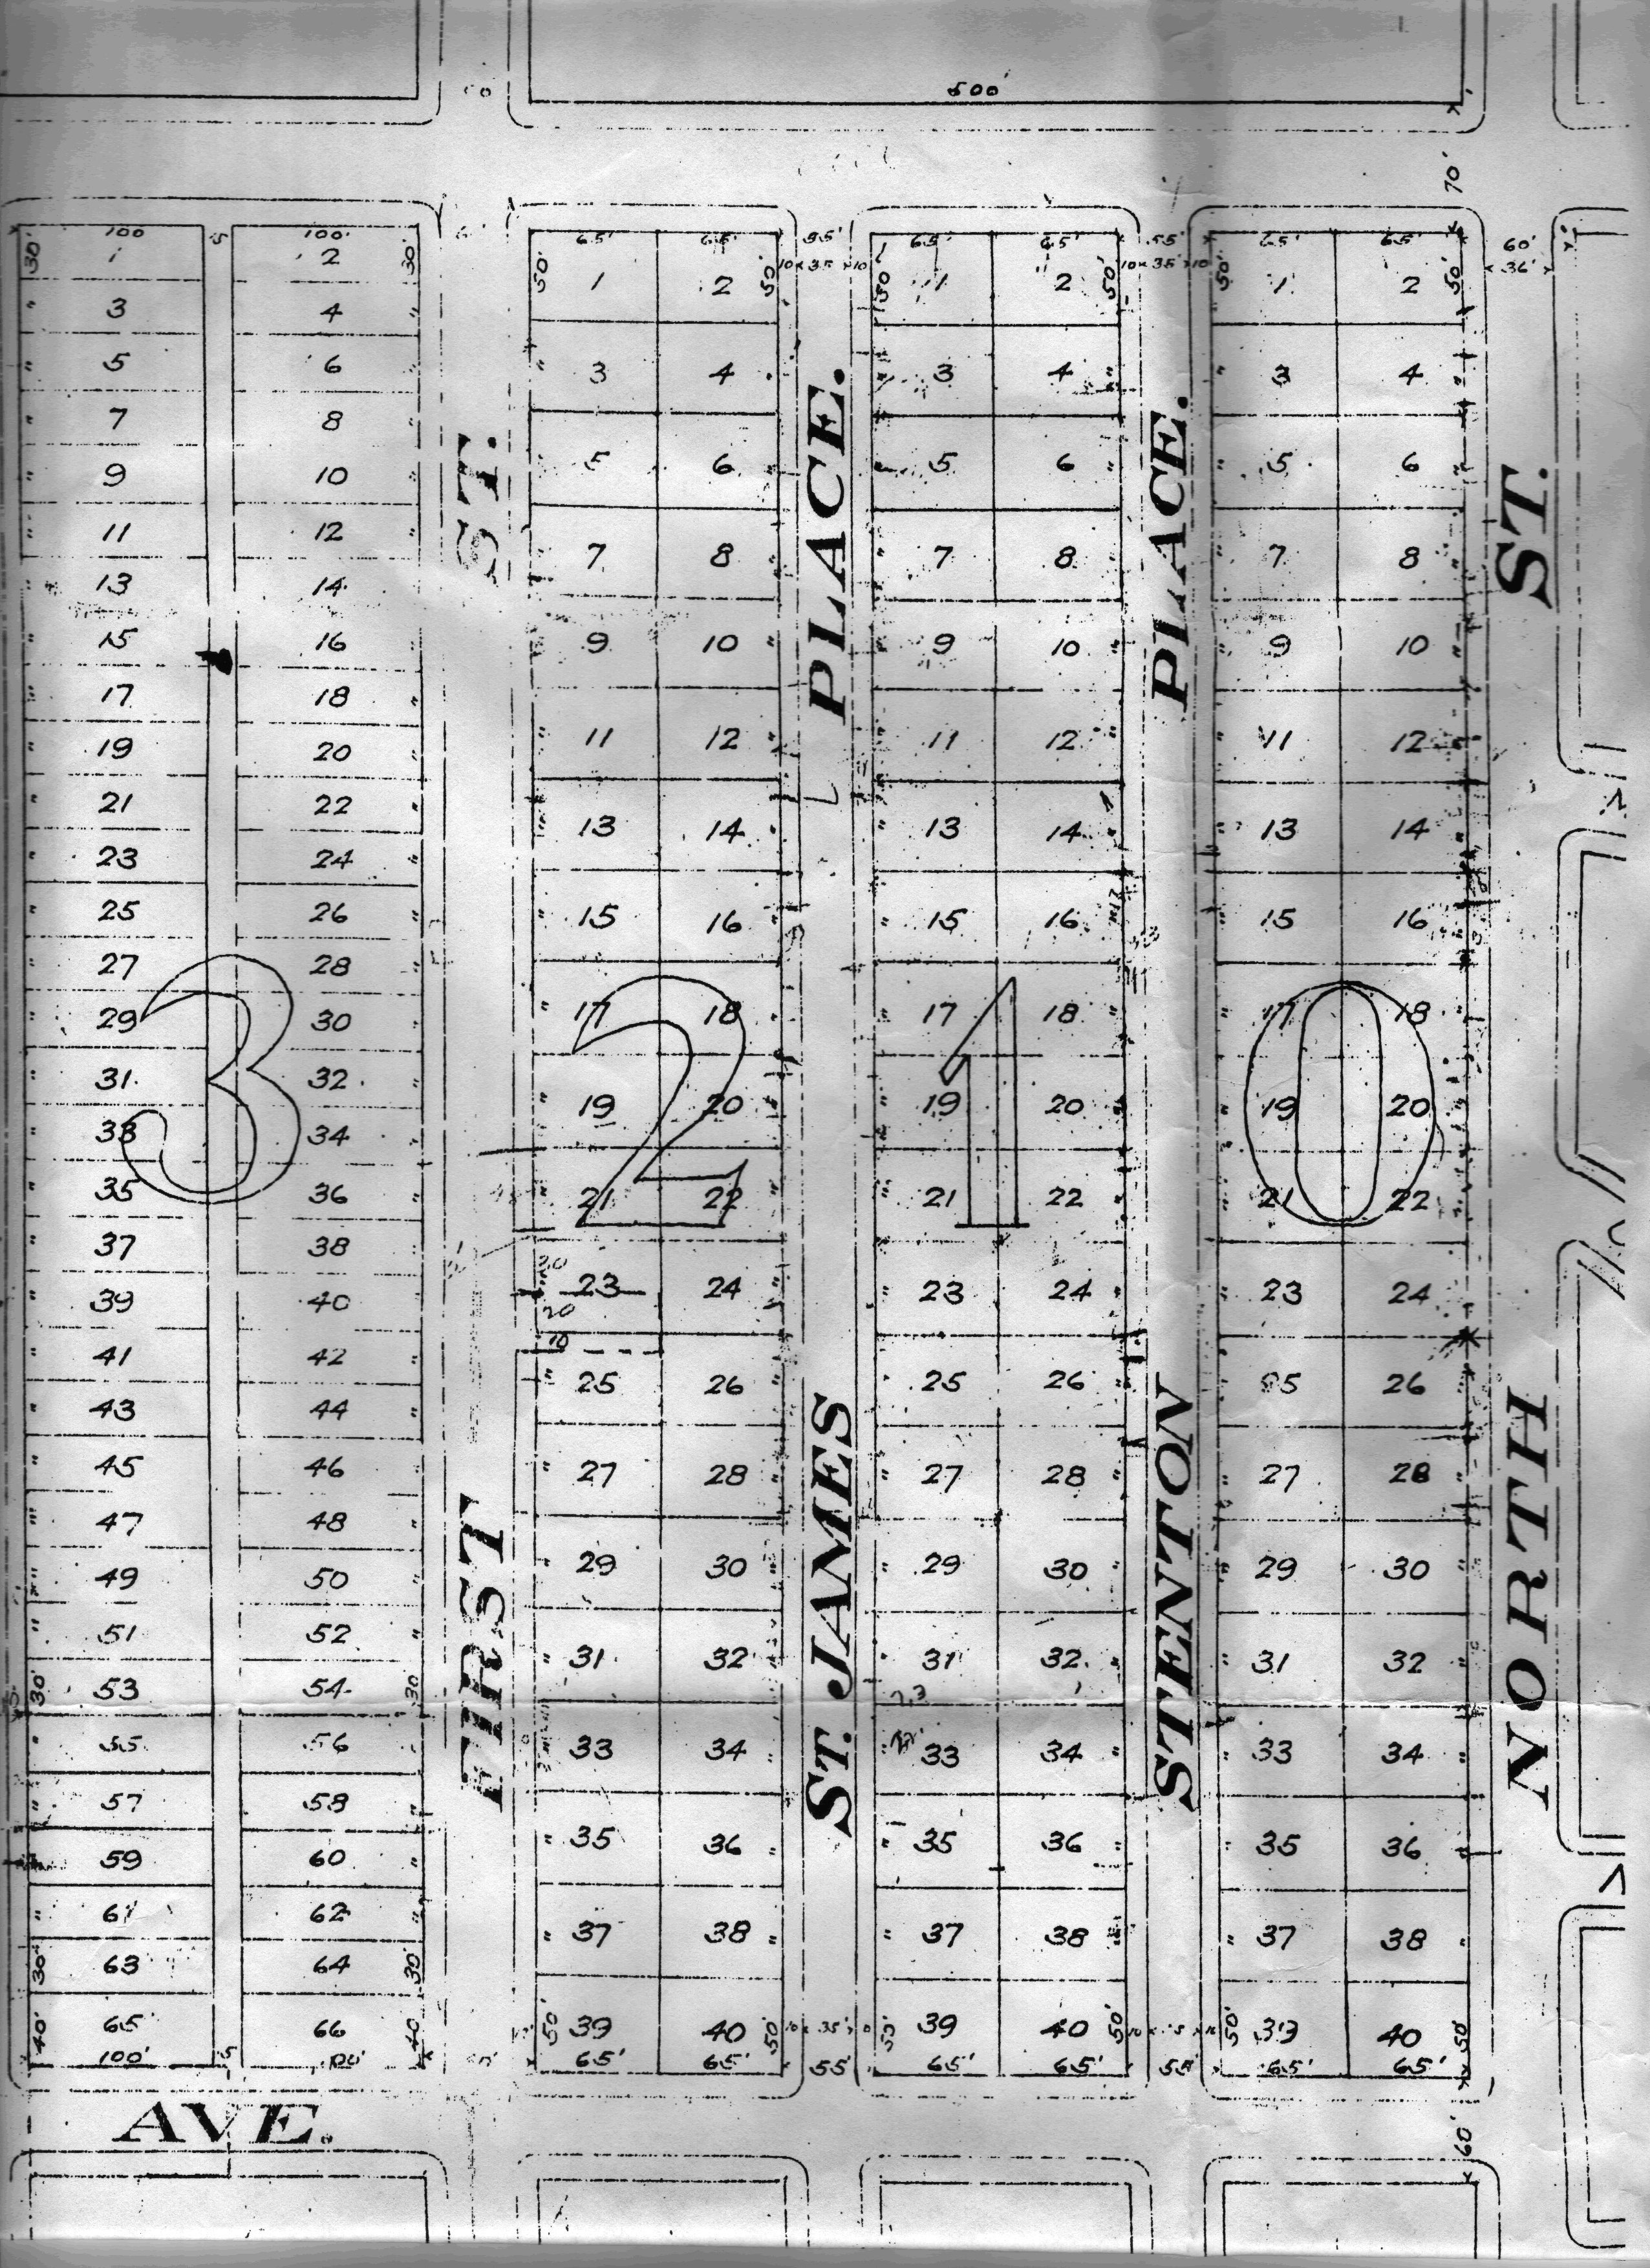 500'
70'
100 100' 65' 65' 55' 65' 65' 55' 65' 65' 60'
10 x 35 x 10 10 x 35 x 10 36'
30' 1 2 30' 50' 1 2 50' 50' 1 2 50' 50' 1 2 50'
3 4 3 4 3 4 3 4
5 6 5 6 5 6 5 6
7 8 7 8 7 8 7 8
9 10 9 10 9 10 9 10
11 12 11 12 11 12 11 12
13 14 13 14 13 14 13 14
15 16 15 16 15 16 15 16
17 18 17 18 17 18 17 18
19 20 19 20 19 20 19 20
21 22 21 22 21 22 21 22
23 24 23 24 23 24 23 24
25 26 25 26 25 26 25 26
27 28 27 28 27 28 27 28
29 30 29 30 29 30 29 30
31 32 31 32 31 32 31 32
33 34 33 34 33 34 33 34
35 36 35 36 35 36 35 36
37 38 37 38 37 38 37 38
39 40 39 40 39 40 39 40
41 42
43 44
45 46
47 48
49 50
51 52
30' 53 54 30
55 56
57 58
59 60
61 62
30' 63 64 30'
40' 65 66 40
50' 50' 50' 50' 50' 50'
100' 100' 65' 65' 55' 65' 65' 55' 65' 65'
30
20
10
3 2 1 0
FIRST ST.
ST. JAMES PLACE.
STENTON PLACE.
NORTH ST.
AVE.
60'